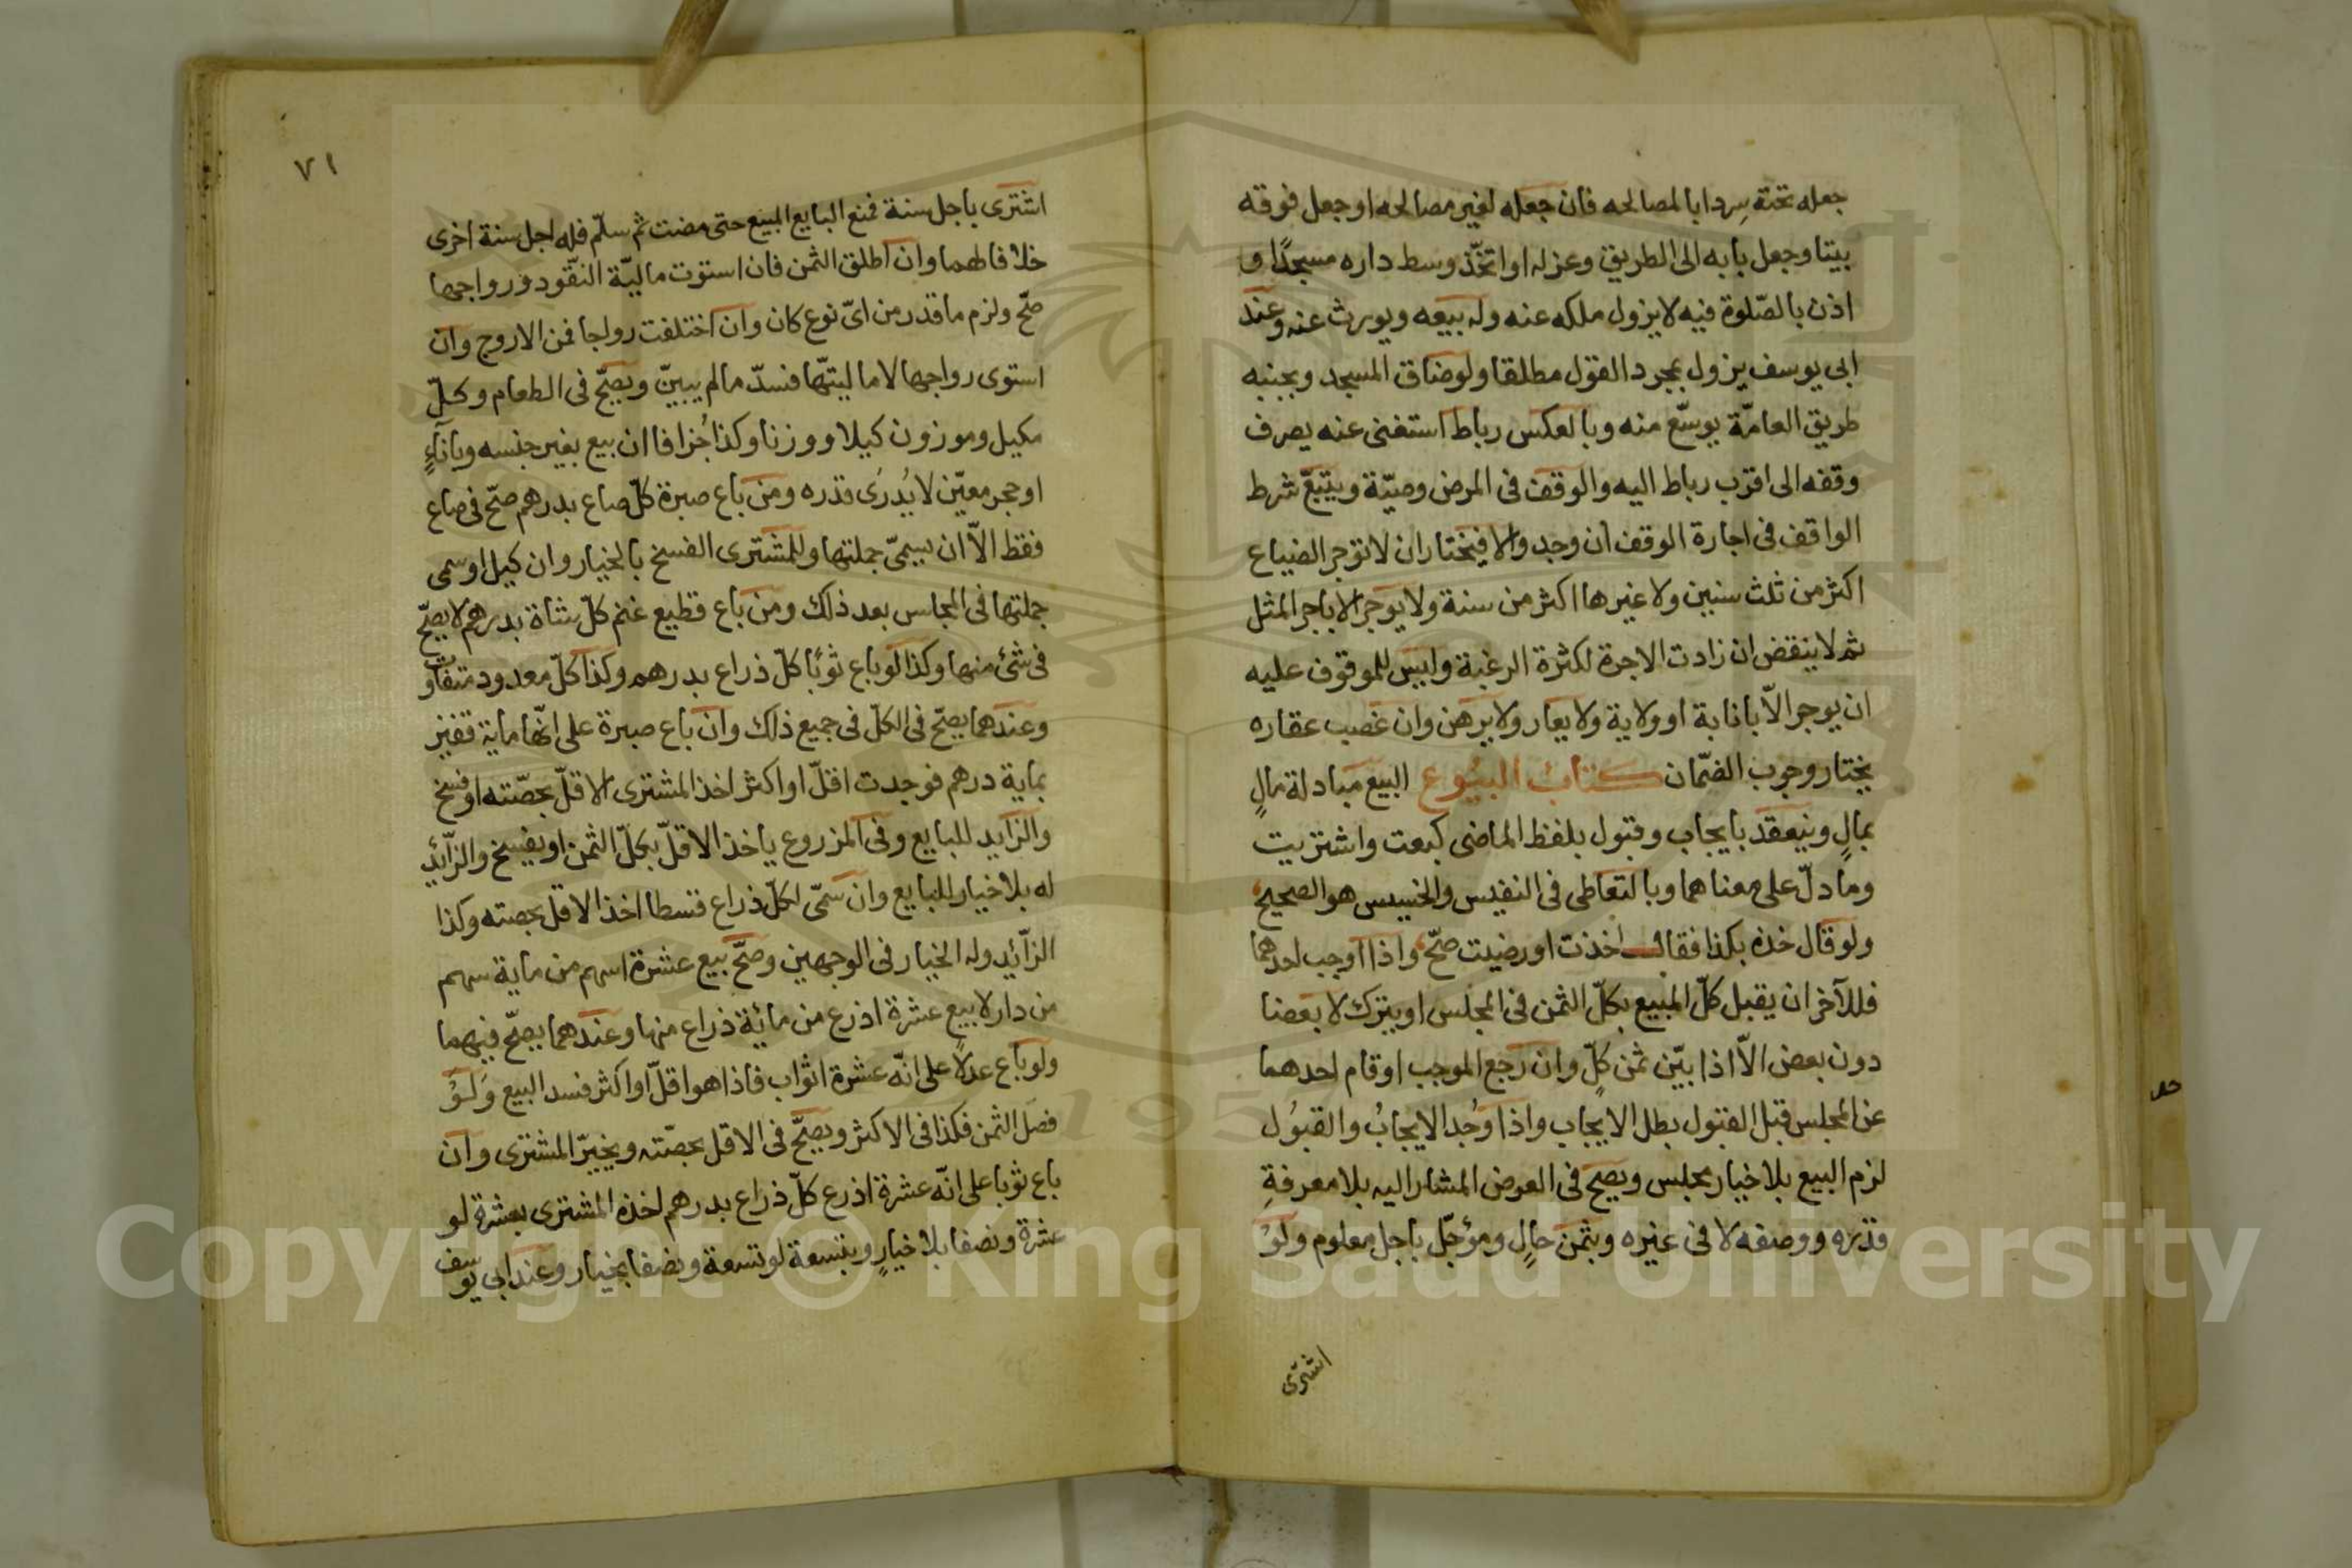 جعله تحته سردابا لمصالحه فان جعله لغير مصالحه او جعل فوقه
بيتا وجعل بابه الى الطريق وعزله او اتخّذ وسط داره مسجدًا و
اذن بالصّلوة فيه لا يزول ملكه عنه وله بيعه ويورث عنه وعند
ابى يوسف يزول بمجرد القول مطلقا ولو ضاق المسجد وبجنبه
طريق العامّة يوسّع منه وبالعكس رباط استغنى عنه يصرف
وقفه الى اقرب رباط اليه والوقف فى المرض وصيّة ويتبعّ شرط
الواقف فى اجارة الوقف ان وجد والا فيختار ان لا توجر الضياع
اكثر من ثلث سنين ولا غيرها اكثر من سنة ولا يوجر الا باجر المثل
ثم لا ينقض ان زادت الاجرة لكثرة الرغبة وليس للموقوف عليه
ان يوجر الاّ بانابة او ولاية ولا يعار ولا يرهن وان غصب عقاره
يختار وجوب الضمّان كتاب البيوع البيع مبادلة مالٍ
بمالٍ وينعقد بايجاب وقبول بلفظ الماضى كبعت واشتريت
وما دلّ على معناهما وبالتعاطى فى النفيس والخسيس هو الصحيح
ولو قال خذه بكذا فقال اخذت او رضيت صحّ واذا اوجب احدهما
فللآخر ان يقبل كلّ المبيع بكلّ الثمن فى المجلس او يترك لا بعضا
دون بعض الاّ اذا بيّن ثمن كلٍّ وان رجع الموجب او قام احدهما
عن المجلس قبل القبول بطل الايجاب واذا وُجد الايجابُ والقبُول
لزم البيع بلا خيار مجلس ويصح فى العوض المشار اليه بلا معرفةِ
قدره ووصفه لا فى غيره وبثمن حالٍ ومؤجّل باجل معلوم ولوُ
اشترى
٧١
اشترى باجل سنة فمنع البايع المبيع حتى مضت ثم سلّم فله اجل سنة اخرى
خلافا لهما وان اطلق الثمن فان استوت ماليّة النقّود ورواجها
صحّ ولزم ما قدر من اىّ نوع كان وان اختلفت رواجا فمن الاروج وان
استوى رواجها لا ماليتّها فسدّ ما لم يبيّن ويصحّ فى الطعام وكلّ
مكيل وموزون كيلا ووزنا وكذا جُزافا ان بيع بغير جنسه وباناءٍ
او حجر معيّن لا يُدرَى قدره ومن باع صبرة كلّ صاع بدرهم صحّ فى صاع
فقط الاّ ان يسمىّ جملتها وللمشترى الفسخ بالخيار وان كيل او سمى
جملتها فى المجلس بعد ذلك ومن باع قطيع غنم كلّ شاة بدرهم لا يصحّ
فى شئ منها وكذا لو باع ثوبًا كلّ ذراع بدرهم وكذا كلّ معدود متفاوت
وعندهما يصحّ فى الكلّ فى جميع ذلك وان باع صبرة على انّها ماية قفيز
بماية درهم فوجدت اقلّ او اكثر اخذ المشترى الاقلّ بحصّته او فسخ
والزايد للبايع وفى المزروع ياخذ الاقلّ بكلّ الثمن او يفسخ والزّائد
له بلا خيار للبايع وان سمّى لكلّ ذراع قسطا اخذ الاقل بحصته وكذا
الزّائد وله الخيار فى الوجهين وصحّ بيع عشرة اسهم من ماية سهم
من دار لا بيع عشرة اذرع من مائة ذراع منها وعندهما يصحّ فيهما
ولو باع عدلاً على انّه عشرة اثواب فاذا هو اقلّ او اكثر فسد البيع وَلَوُ
فصّل الثمن فكذا فى الاكثر ويصحّ فى الاقل بحصّته ويخيرّ المشترى وان
باع ثوبا على انّه عشرة اذرع كلّ ذراع بدرهم اخذه المشترى بعشرة لو
عشرة ونصفا بلا خيارٍ وبتسعة لو تسعة ونصفا بخيار وعند ابى يوسف
Copyright © King Saud University
1957